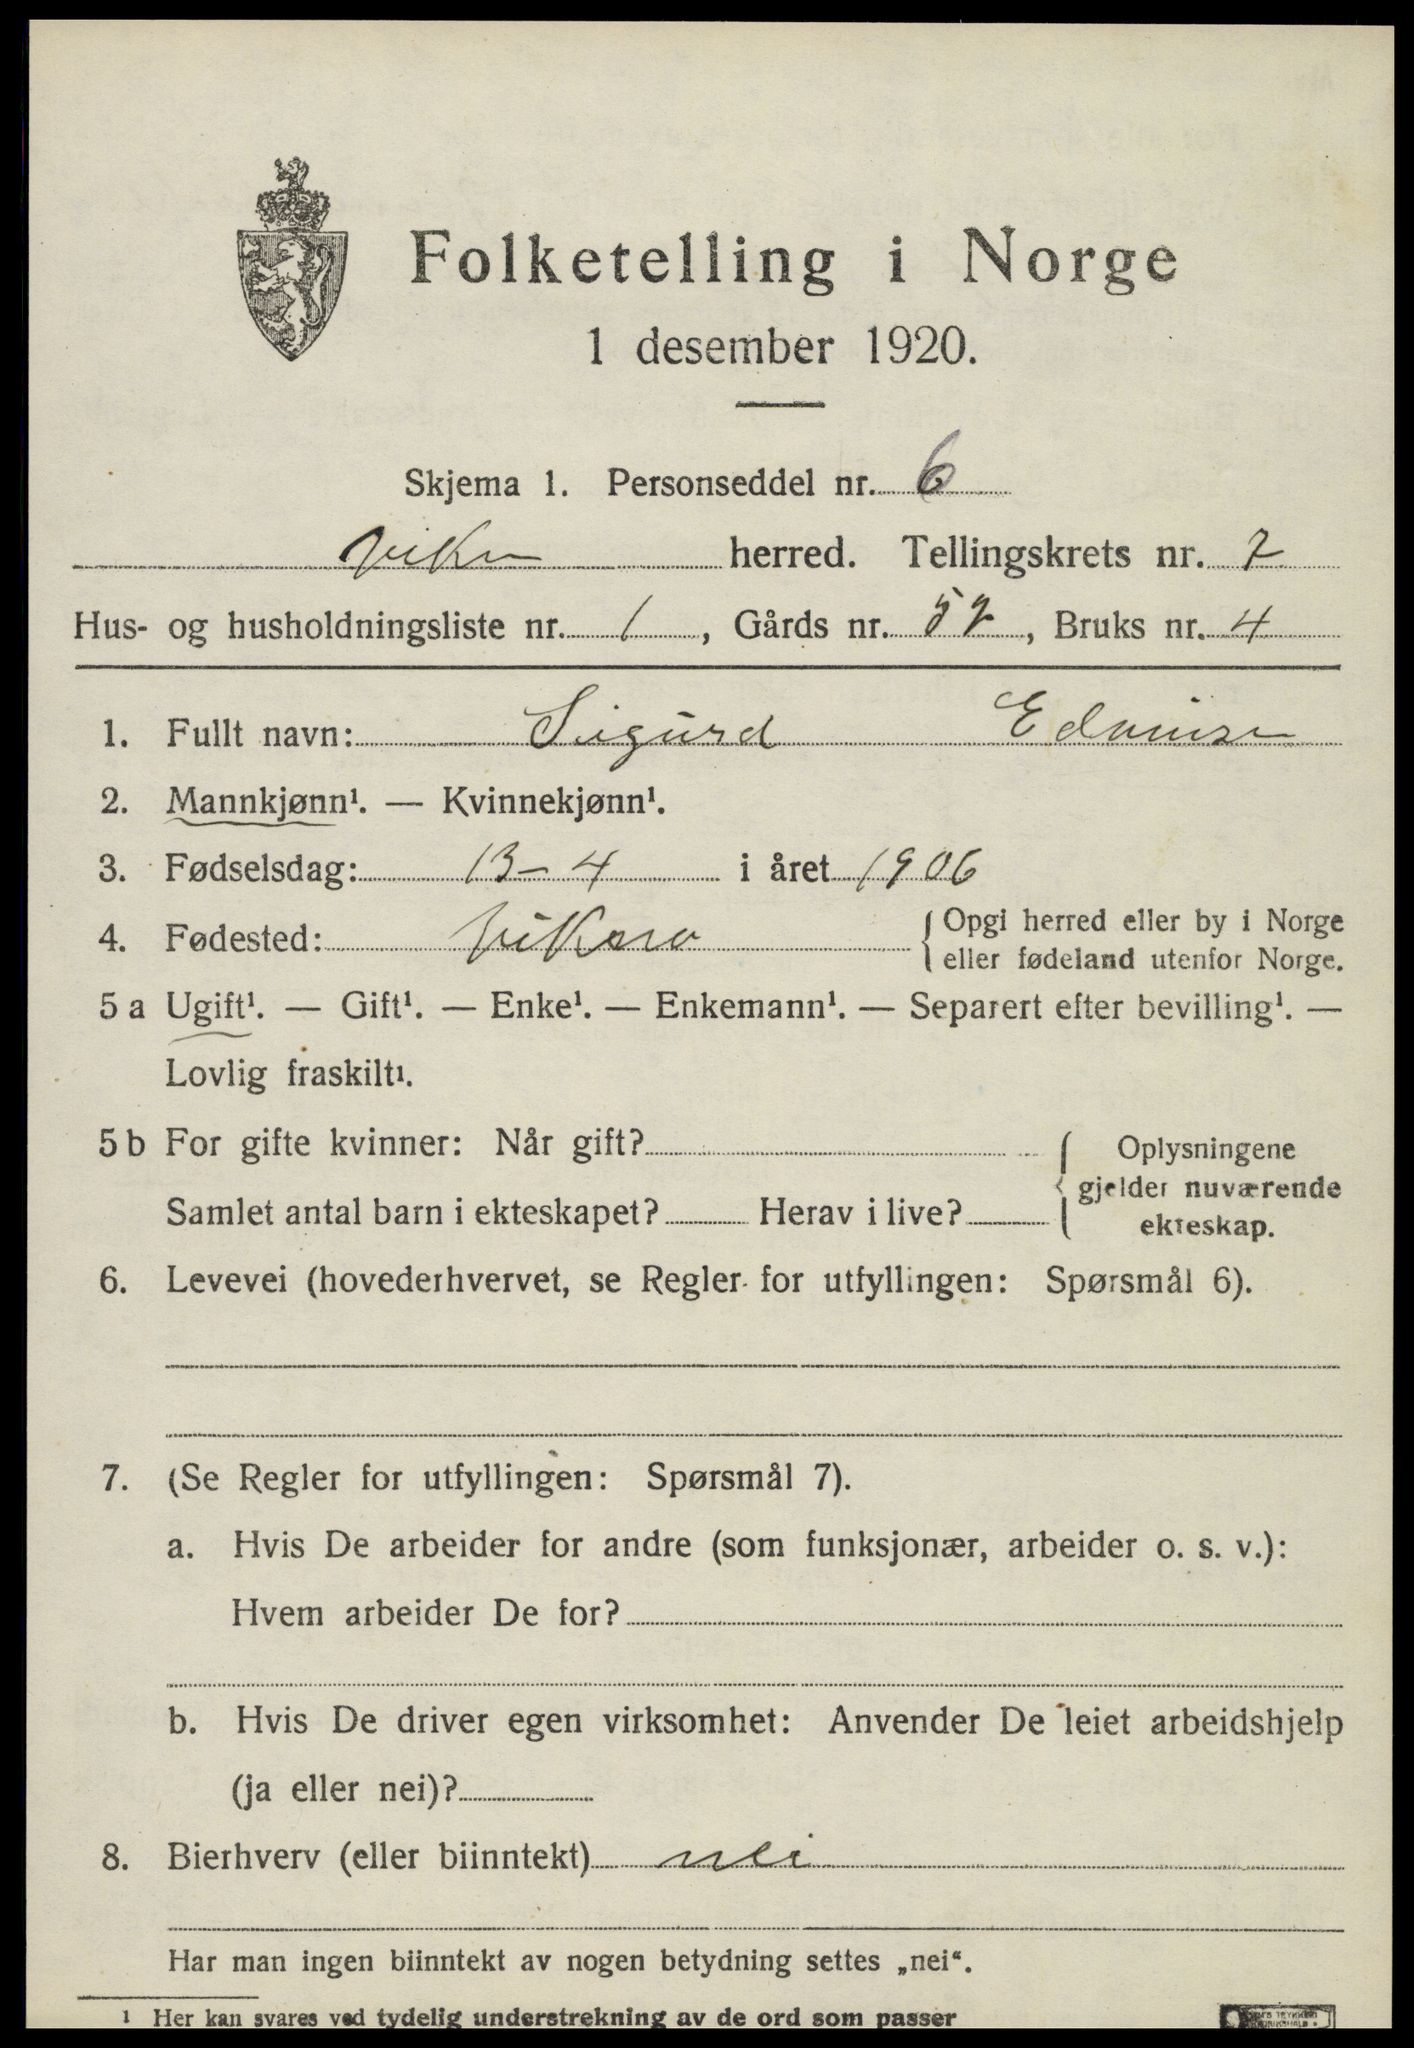 Folketelling i Norge
1 desember 1920.
Skjema 1. Personseddel nr. 6
herred. Tellingskrets nr. 7
Hus- og husholdningsliste nr. 1, Gårds nr. 52, Bruks nr. 4
1. Fullt navn: Sigurd
2. Mannkjønn¹. — Kvinnekjønn¹.
3. Fødselsdag: 13-4 i året 1906
4. Fødested: { Opgi herred eller by i Norge
eller fødeland utenfor Norge.
5 a Ugift¹. — Gift¹. — Enke¹. — Enkemann¹. — Separert efter bevilling¹. —
Lovlig fraskilt¹.
5 b For gifte kvinner: Når gift?
Samlet antal barn i ekteskapet? Herav i live?
{ Oplysningene
gjelder nuværende
ekteskap.
6. Levevei (hovederhvervet, se Regler for utfyllingen: Spørsmål 6).
7. (Se Regler for utfyllingen: Spørsmål 7).
a. Hvis De arbeider for andre (som funksjonær, arbeider o. s. v.):
Hvem arbeider De for?
b. Hvis De driver egen virksomhet: Anvender De leiet arbeidshjelp
(ja eller nei)?
8. Bierhverv (eller biinntekt) nei
Har man ingen biinntekt av nogen betydning settes „nei“.
¹ Her kan svares ved tydelig understrekning av de ord som passer